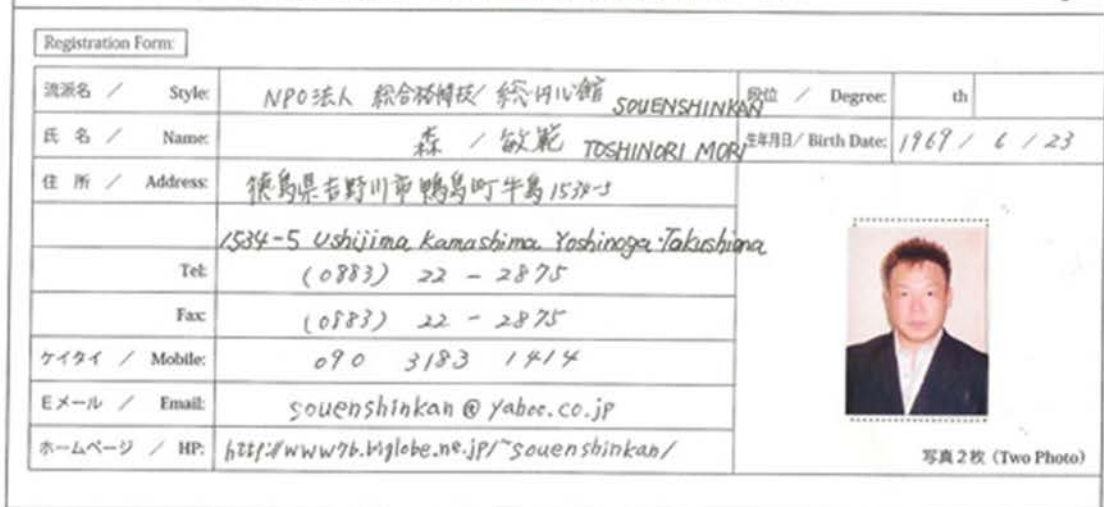 Registration Form:
流派名 / Style: NPO法人 総合格闘技/ 総円心館 SOUENSHINKAN 段位 / Degree: th
氏 名 / Name: 森 / 敏範 TOSHINORI MORI 生年月日/ Birth Date: 1969 / 6 / 23
住 所 / Address: 徳島県吉野川市鴨島町牛島1534-5
1534-5 Ushijima Kamashima Yoshinoga Tokushima
Tel: (0883) 22 - 2875
Fax: (0883) 22 - 2875
ケイタイ / Mobile: 090 3183 1414
Eメール / Email: souenshinkan@yahoo.co.jp
ホームページ / HP: http://www7b.biglobe.ne.jp/~souenshinkan/
写真2枚 (Two Photo)